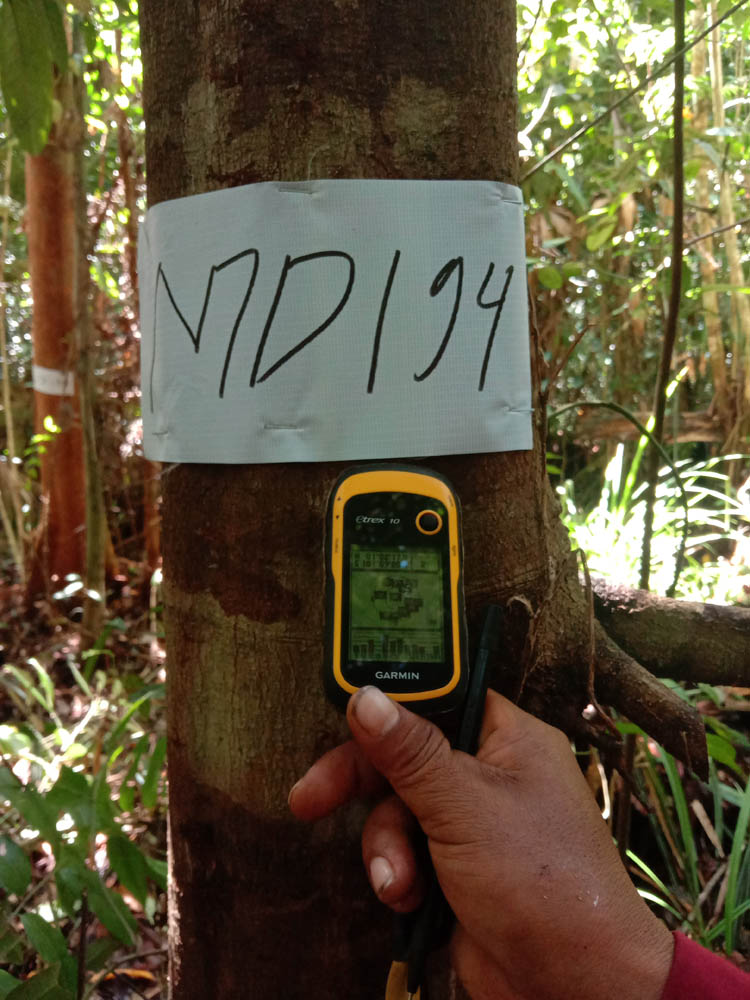 MD194
eTrex 10
GARMIN